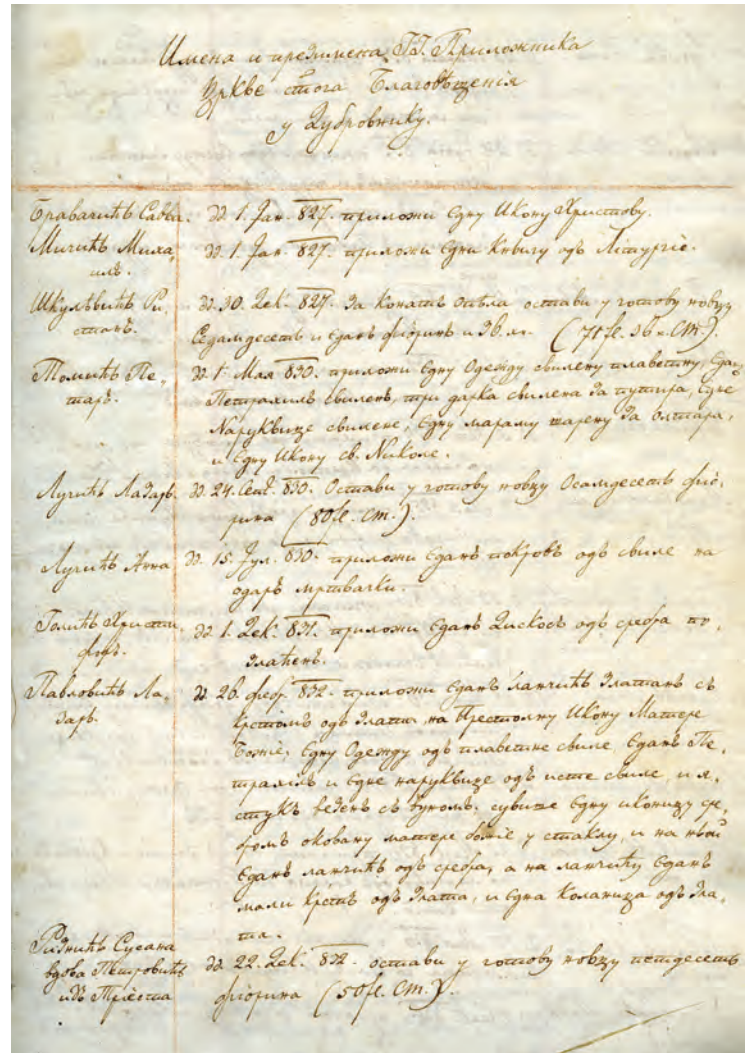 Имена и презимена ГГ. Приложника
Цркве стога Благовѣщенія
у Дубровнику.
Бравачићъ Савва. Дⁿ 1. Јан. 827. приложи Єдну Икону Христову.
Мичићъ Михаилъ. Дⁿ 1. Јан. 827. приложи Єдни Книгу одъ Літургіе.
Шкулѣвићъ Ристанъ. Дⁿ 30. Дек. 827. За Конатъ Опѣла остави у готову новцу
Седамдесетъ и Єданъ фіоринъ и 36. кⁿ. (71 fl. 36 к. Cm.).
Томићъ Петаръ. Дⁿ 1. Маја 830. приложи Єдну Одежду свилену плаветну, Єдан
Петрахиль Свиленъ, три дарка свилена За путира, Єдне
Наруквице свилене, Єдну мараму шарену За Олтара,
и Єдну Икону св. Николе.
Лучићъ Лазаръ. Дⁿ 24. Септ. 830. Остави у готову новцу Осамдесетъ фіо-
рина (80 fl. Cm.).
Лучићъ Анна Дⁿ 15. Јул. 830. приложи Єданъ покровъ одъ свиле на
одаръ мртвачки.
Голићъ Христифоръ. Дⁿ 1. Дек. 831. приложи Єданъ Дискосъ одъ сребра по-
злаћенъ.
Павловићъ Лазаръ. Дⁿ 26. Фебр. 832. приложи Єданъ ланчићъ Златанъ съ
Крстомъ одъ Злата на Престолну Икону Матере
Божіе, Єдну Одежду одъ плаветне свиле, Єданъ Пе-
трахиль и Єдне наруквице одъ исте свиле, и я-
стукъ везенъ съ вуномъ. сувише Єдну иконицу сре-
бромъ оковану матере божіе у стаклу, и на ньой
Єданъ ланчићъ одъ сребра, а на ланчићу Єданъ
мали Крстъ одъ Злата, и Єдна Коланица одъ Зла-
та.
Ризнићъ Сусана
вдова Петровићъ
изъ Тріеста
Дⁿ 22. Дек. 832. остави у готову новцу петдесетъ
фіорина (50 fl. Cm.).